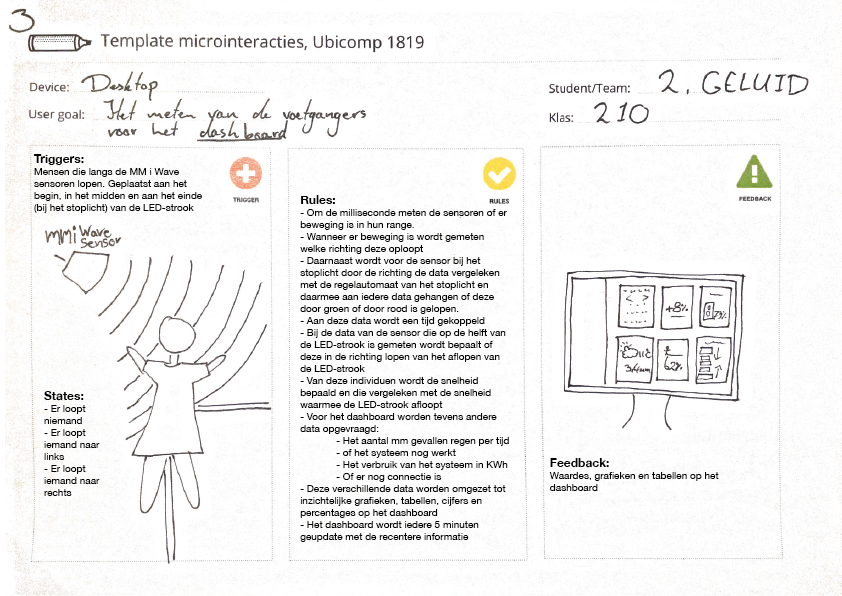 3
Template microinteracties, Ubicomp 1819
Device: Desktop
Student/Team: 2, GELUID
User goal: Het meten van de voetgangers
voor het dashboard
Klas: 210
Triggers:
Mensen die langs de MM i Wave
sensoren lopen. Geplaatst aan het
begin, in het midden en aan het einde
(bij het stoplicht) van de LED-strook
TRIGGER
MMi Wave
Sensor
States:
- Er loopt
niemand
- Er loopt
iemand naar
links
- Er loopt
iemand naar
rechts
RULES
Rules:
- Om de milliseconde meten de sensoren of er
beweging is in hun range.
- Wanneer er beweging is wordt gemeten
welke richting deze oploopt
- Daarnaast wordt voor de sensor bij het
stoplicht door de richting de data vergeleken
met de regelautomaat van het stoplicht en
daarmee aan iedere data gehangen of deze
door groen of door rood is gelopen.
- Aan deze data wordt een tijd gekoppeld
- Bij de data van de sensor die op de helft van
de LED-strook is gemeten wordt bepaalt of
deze in de richting lopen van het aflopen van
de LED-strook
- Van deze individuen wordt de snelheid
bepaald en die vergeleken met de snelheid
waarmee de LED-strook afloopt
- Voor het dashboard worden tevens andere
data opgevraagd:
- Het aantal mm gevallen regen per tijd
- of het systeem nog werkt
- Het verbruik van het systeem in KWh
- Of er nog connectie is
- Deze verschillende data worden omgezet tot
inzichtelijke grafieken, tabellen, cijfers en
percentages op het dashboard
- Het dashboard wordt iedere 5 minuten
geupdate met de recentere informatie
FEEDBACK
+8%
7%
34mm
62%
Feedback:
Waardes, grafieken en tabellen op het
dashboard